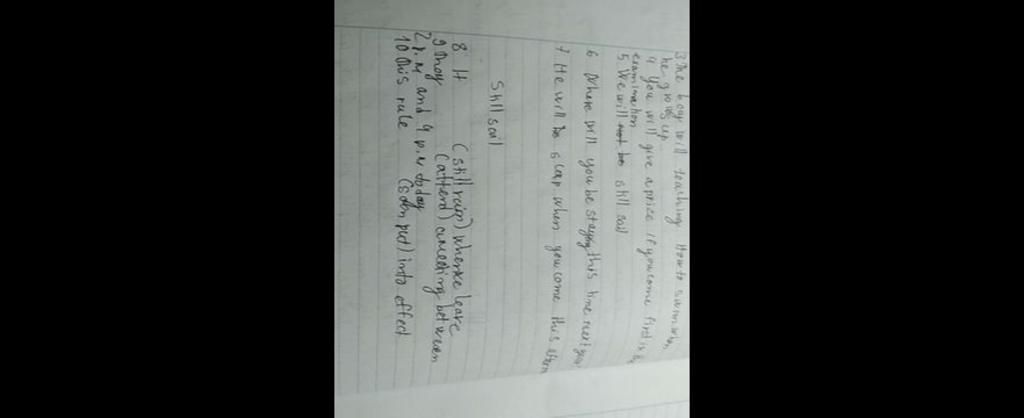 3 The boy will teaching How to swim when
he grows up
4 You will give a price if you come first in
examination
5 We will not be still sail
6 Where will you be staying this time next year
7 He will be sleep when you come this
Still sail
8 It (still rain) when we leave
9 They (attend) a meeting between
2 P.M and 4 p.M today
10 This rule (soon put) into effect